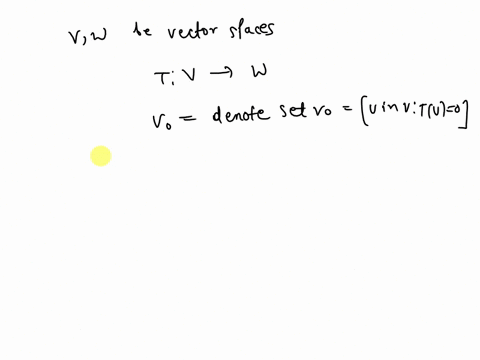 V, W be vector spaces
T: V → W
V₀ = denote set V₀ = [v in V: T(v)=0]